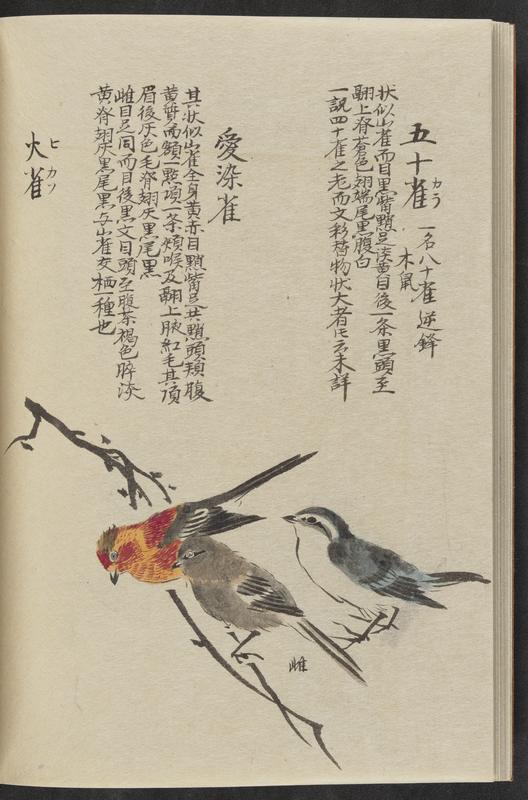 五十雀 カラ 一名八十雀 逆鋒
木鼠
状似山雀而目黒觜黲足淡黄目後一条黒頭至
翮上脊蒼色翅端尾黒腹白
一説四十雀之老而文彩替物状大者是云未詳
愛染雀
其状似山雀全身黄赤目黲觜足共黲頭頬腹
黄質而額一點項一条頬喉及翮上腋紅毛其頂
眉後灰色毛脊翅灰黒尾黒
雌目足同而目後黒文目頭至腹茶褐色脺淡
黄脊翅灰黒尾黒与山雀交栖一種也
火雀 ヒカラ
雌